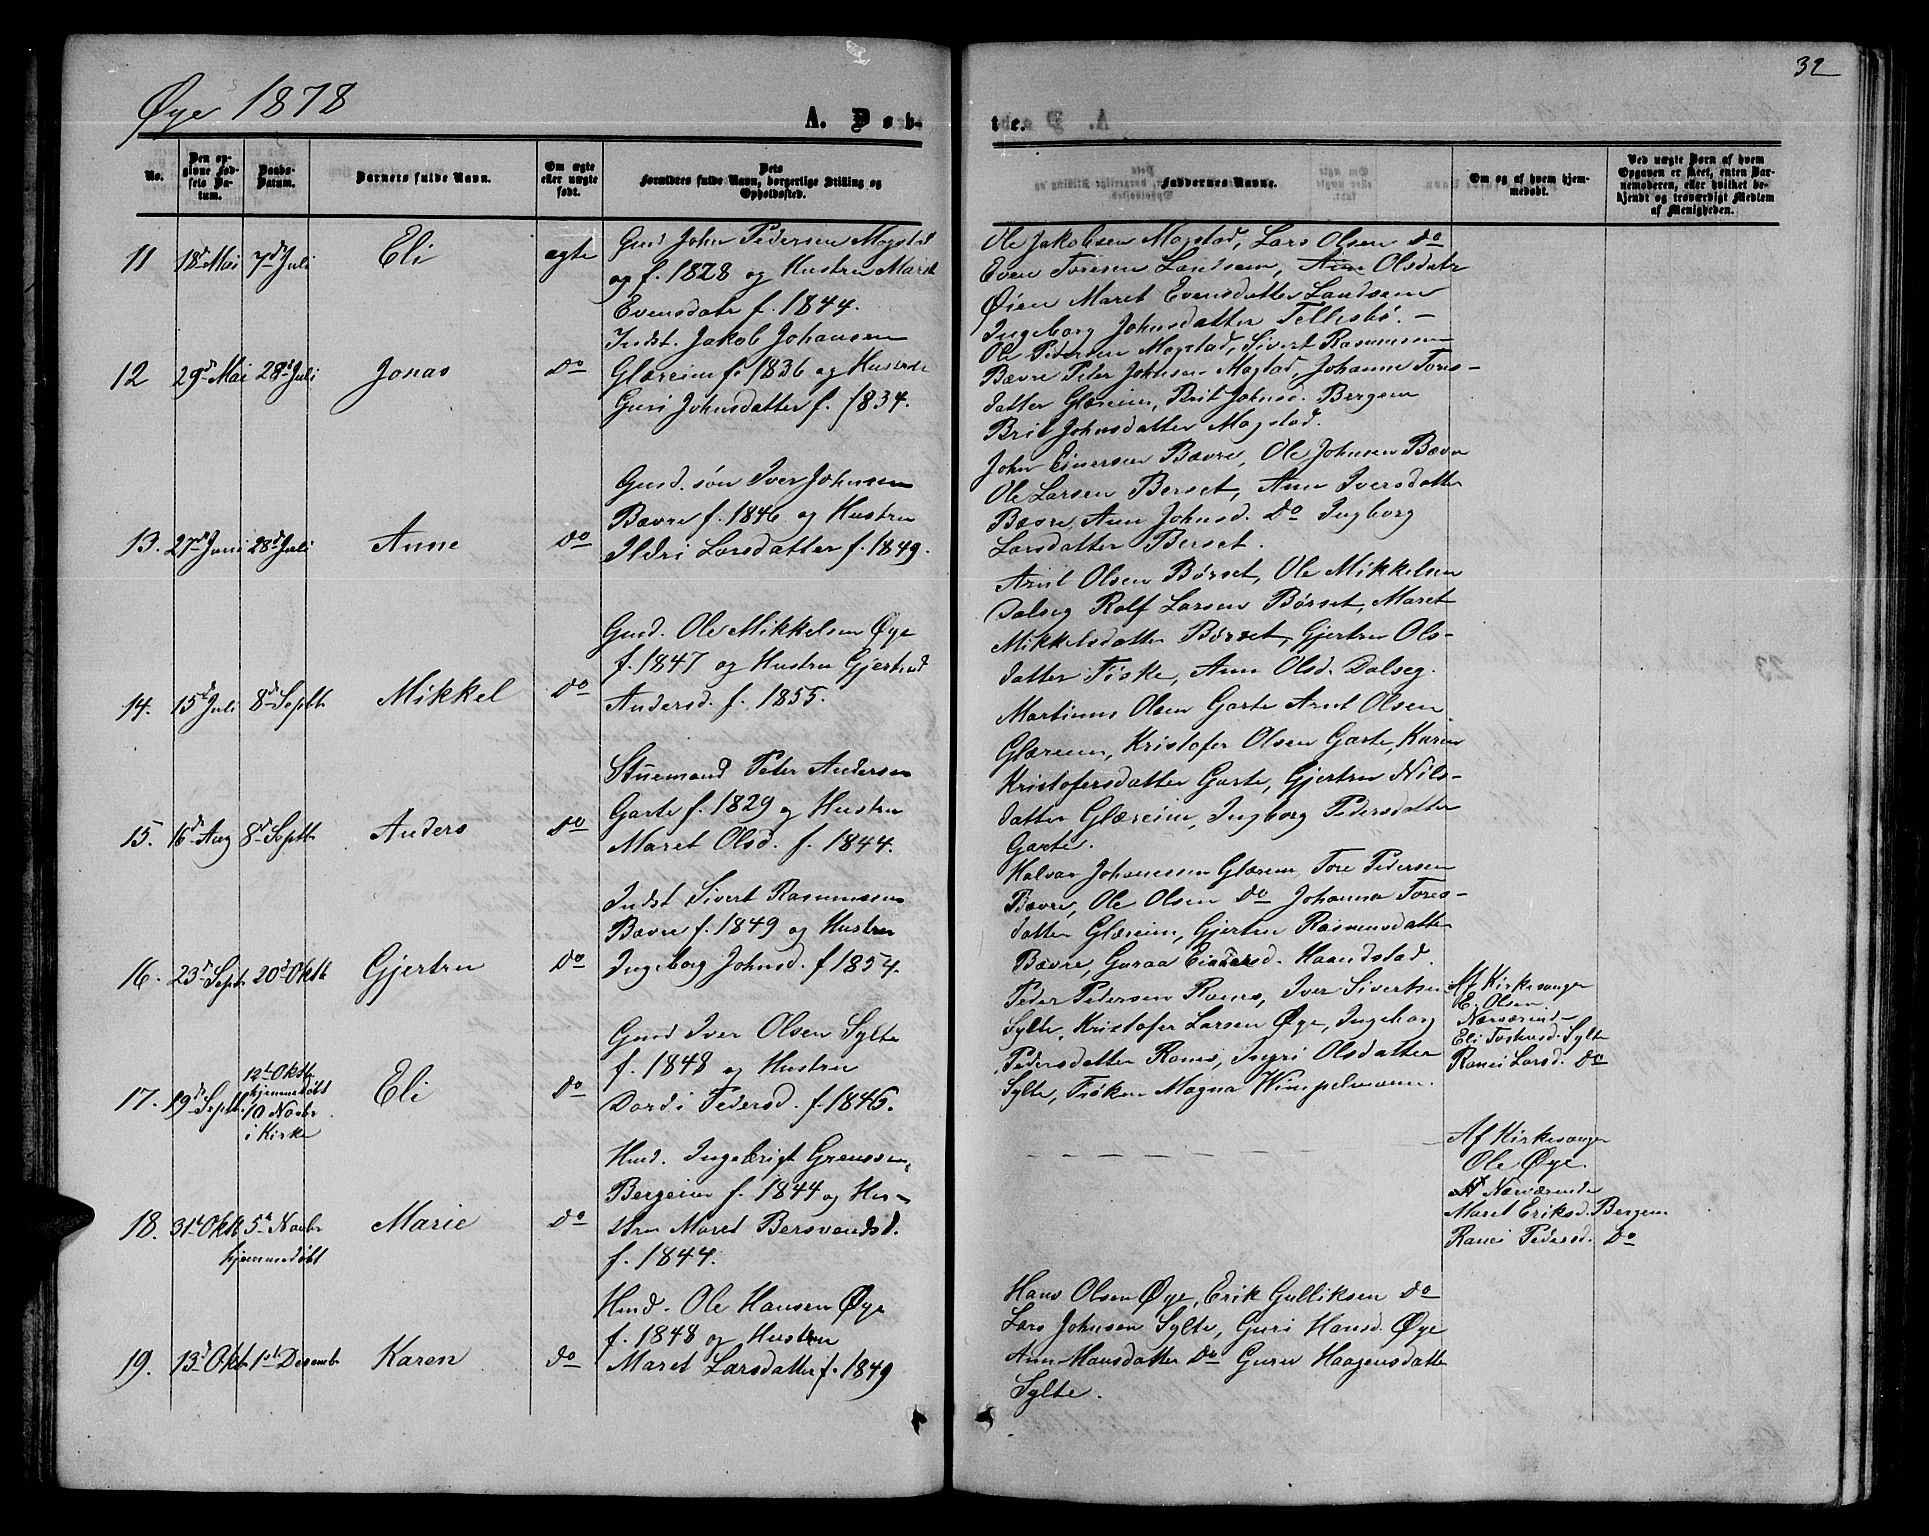 Øye 1878
A. Døb-
te.
32
No.
Den opgivne Fødsels Datum.
Daabs-Datum.
Barnets fulde Navn.
Om ægte eller uægte født.
Dets Forældres fulde Navn, borgerlige Stilling og Opholdssted.
Faddernes Navne.
Om og af hvem hjemmedøbt.
Ved uægte Børn af hvem Opgaven er skeet, enten Barnemoderen, eller hvilket bekjendt og troværdigt Medlem af Menigheden.
11 18d Mai 7d Juli Eli ægte
Gmd John Pedersen Magstad
og f. 1828 og Hustru Maret
Evensdatr f. 1844.
Ole Jakobsen Magstad, Lars Olsen Do
Even Toresen Landsem, Ane Olsdatr
Øien Maret Evensdatter Landsem
Ingeborg Johnsdatter Tellesbø. -
12 29d Mai 28d Juli Jonas Do
Indst. Jakob Johansen
Glæreim f. 1836 og Hustru
Guri Johnsdatter f. 1834.
Ole Pedersen Magstad, Sivert Rasmussen
Bævre Peter Johnsen Magstad, Johanne Tores-
datter Glæreim, Brit Johnsd. Bergem
Brit Johnsdatter Magstad.
13. 27d Juni 28d Juli Anne Do
Gmd. søn Iver Johnsen
Bævre f. 1846 og Hustru
Ildri Larsdatter f. 1849.
John Einersen Bævre, Ole Johnsen Bævre
Ole Larsen Berset, Ann Iversdatter
Bævre, Ann Johnsd. Do Ingborg
Larsdatter Berset.
14. 15d Juli 8d Septbr Mikkel Do
Gmd. Ole Mikkelsen Øye
f. 1847 og Hustru Gjertrud
Andersd. f. 1855.
Arnt Olsen Børset, Ole Mikkelsen
Dalseg Rolf Larsen Børset, Maret
Mikkelsdatter Børset, Gjertru Ols-
datter Fiske, Ann Olsd. Dalseg.
15. 16d Aug 8d Septbr Anders Do
Stuemand Peter Andersen
Garte f. 1829 og Hustru
Maret Olsd. f. 1844.
Martinus Olsen Garte Arnt Olsen
Glæreim, Kristofer Olsen Garte, Karen
Kristofersdatter Garte, Gjertru Nils-
datter Glæreim, Ingborg Pedersdatter
Garte.
16. 23d Sept. 20d Oktb Gjertru Do
Indst Sivert Rasmussen
Bævre f. 1849 og Hustru
Ingeborg Johnsd. f 1854.
Halvar Johansen Glæreim Tore Pedersen
Bævre, Ole Olsen Do Johanna Tores-
datter Glæreim, Gjertru Rasmusdatter
Bævre, Guraa Einarsd. Haandstad.
17. 19d Septb. 12te Oktbr hjemmedøbt 10 Novbr i Kirke Eli Do
Gmd Iver Olsen Sylte
f. 1848 og Hustru
Dordi Pedersd. f. 1845.
Peder Pedersen Ranes, Iver Sivertsen
Sylte, Kristofer Larsen Øye, Ingeborg
Pedersdatter Ranes, Ingri Olsdatter
Sylte, Frøken Magna Wimpelmann.
Af Kirkesanger
E. Olsen.
Nærværend-
Eli Torkusd. Sylte
Ranei Larsd. Do
18. 31te Oktb 5d Novbr hjemmedøbt Marie Do
Hmd. Ingebrigt
Bergeim f. 1844 og Hu-
stru Maret Bersvendsd.
f. 1844.
Af Kirkesanger
Ole Øye.
Nærværende
Maret Eriksd. Bergem
Ranei Pedersd. Do
19. 13d Oktb. 1ste Desembr Karen Do
Hmd. Ole Hansen Øye
f. 1848 og Hustru
Maret Larsdatter f. 1849
Hans Olsen Øye, Erik Gulliksen Do
Lars Johnsen Sylte, Guri Hansd. Øye
Ann Hansdatter Do Guru Haagensdatter
Sylte.